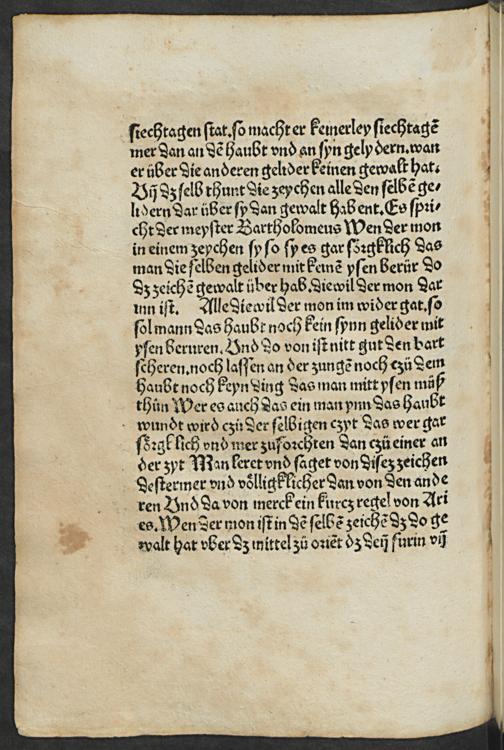 siechtagen stat. so macht er keinerley siechtagē
mer dan an dē haubt vnd an syn gely dern. wan
er über die anderen gelider keinen gewalt hat.
Vij dz selb thunt die zeychen alle den selbē ge⸗
lidern dar über sy dan gewalt habent. Es spri⸗
cht der meyster Bartholomeus Wen der mon
in einem zeychen sy so sy es gar sörgklich das
man die selben gelider mit keinē ysen berür do
dz zeichē gewalt über hab. die wil der mon dar
inn ist. Alle die wil der mon im wider gat. so
sol mann das haubt noch kein synn gelider mit
ysen beruren. Vnd do von ist nitt gut den bart
scheren. noch lassen an der zungē noch czü dem
haubt noch keyn ding das man mitt ysen müß
thün Wer es auch das ein man ynn das haubt
wundt wird czü der selbigen czyt das wer gar
sörgklich vnd mer zuforchten dan czü einer an
der zyt Man leret vnd saget von disez zeichen
destermer vnd völligklicher dan von den ande
ren Vnd da von merck ein kurcz regel von Ari
es. Wen der mon ist in dē selbē zeichē dz do ge
walt hat vber dz mittel zü oriēt dz deij furin vij